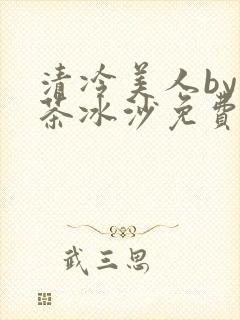 清冷美人by
茶冰沙免費
武三思